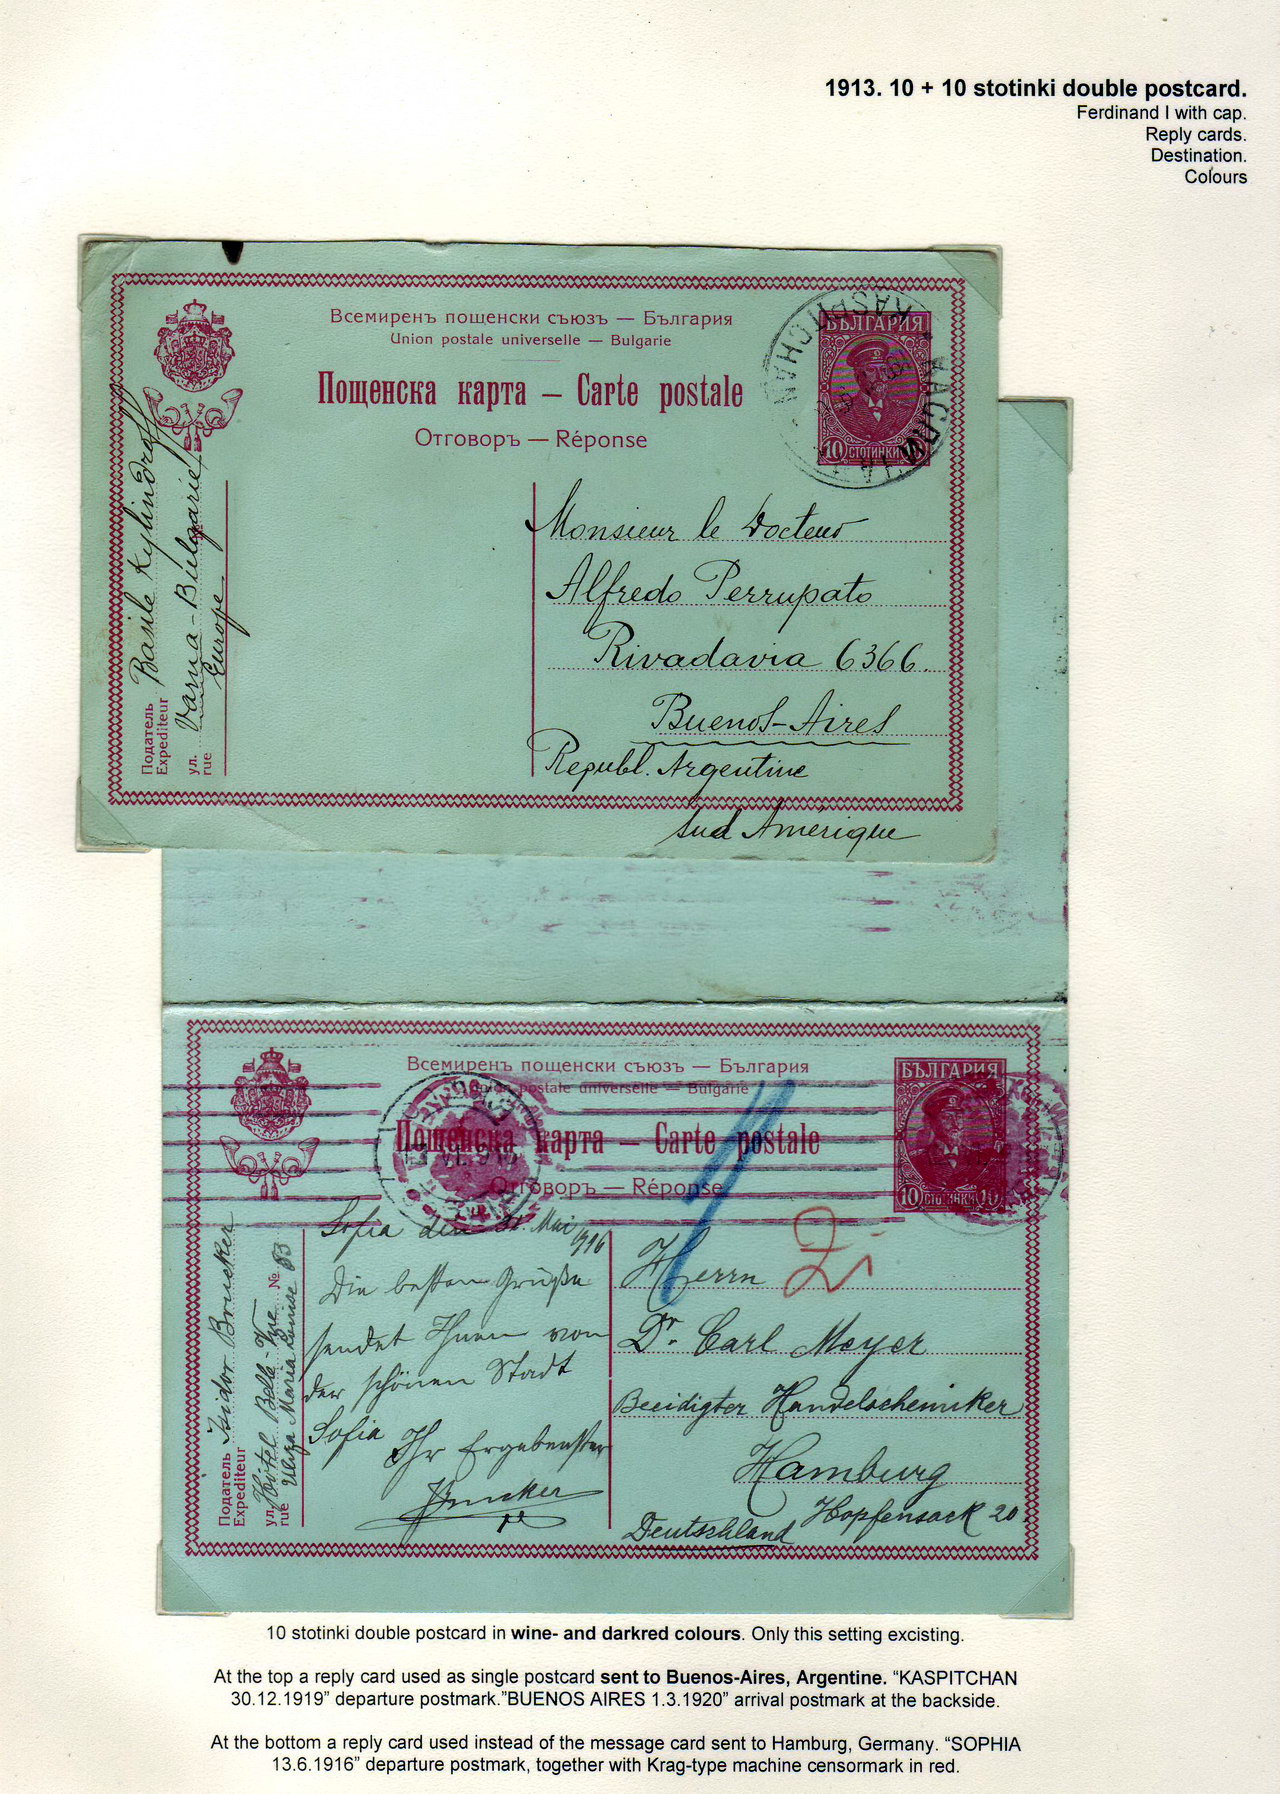 1913. 10 + 10 stotinki double postcard.
Ferdinand I with cap.
Reply cards.
Destination.
Colours
Всемиренъ пощенски съюзъ — България
Union postale universelle — Bulgarie
Пощенска карта — Carte postale
Отговоръ — Réponse
БЪЛГАРИЯ
10 СТОТИНКИ 10
KASPITCHAN
Податель
Expediteur
Basile Kylindroff
ул.
rue
Varna-Bulgarie
Europe
Monsieur le Docteur
Alfredo Perrupato
Rivadavia 6366.
Buenos-Aires
Republ. Argentine
Sud Amérique
Всемиренъ пощенски съюзъ — България
Union postale universelle — Bulgarie
Пощенска карта — Carte postale
Отговоръ — Réponse
БЪЛГАРИЯ
10 СТОТИНКИ 10
Податель
Expediteur
Isidor Brucker
Hôtel Belle-Vue
ул.
rue
Uliza Maria Louise № 83
Sofia den 31. Mai 1916
Die besten Grüße
sendet Ihnen von
der schönen Stadt
Sofia Ihr Ergebenster
Brucker
Herrn
Dr. Carl Meyer
Beeidigter Handelschemiker
Hamburg
Hopfensack 20.
Deutschland
10 stotinki double postcard in wine- and darkred colours. Only this setting excisting.
At the top a reply card used as single postcard sent to Buenos-Aires, Argentine. “KASPITCHAN
30.12.1919” departure postmark.”BUENOS AIRES 1.3.1920” arrival postmark at the backside.
At the bottom a reply card used instead of the message card sent to Hamburg, Germany. “SOPHIA
13.6.1916” departure postmark, together with Krag-type machine censormark in red.